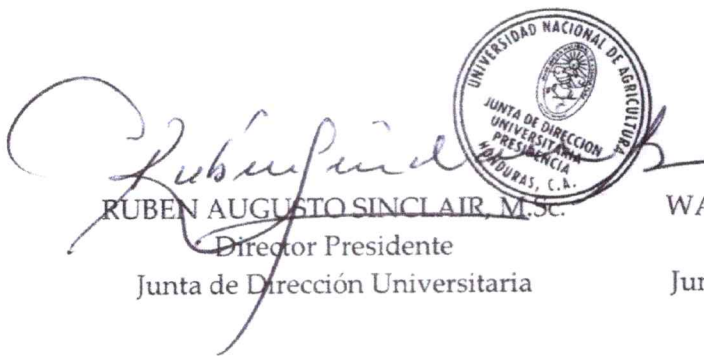 UNIVERSIDAD NACIONAL DE AGRICULTURA
JUNTA DE DIRECCION
UNIVERSITARIA
PRESIDENCIA
HONDURAS, C.A.
RUBEN AUGUSTO SINCLAIR, M.Sc.
WA
Director Presidente
Junta de Dirección Universitaria
Jun